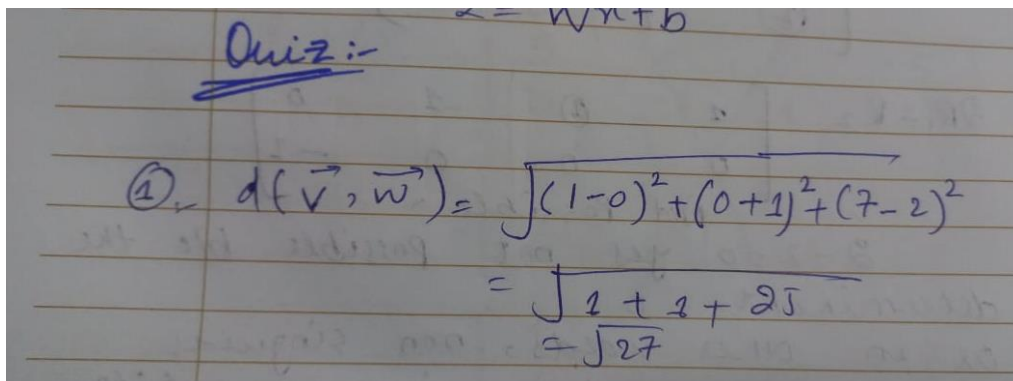 = Wx+b
Quiz:-
①- d(v⃗, w⃗) = √(1-0)²+(0+1)²+(7-2)²
= √1 + 1 + 25
= √27